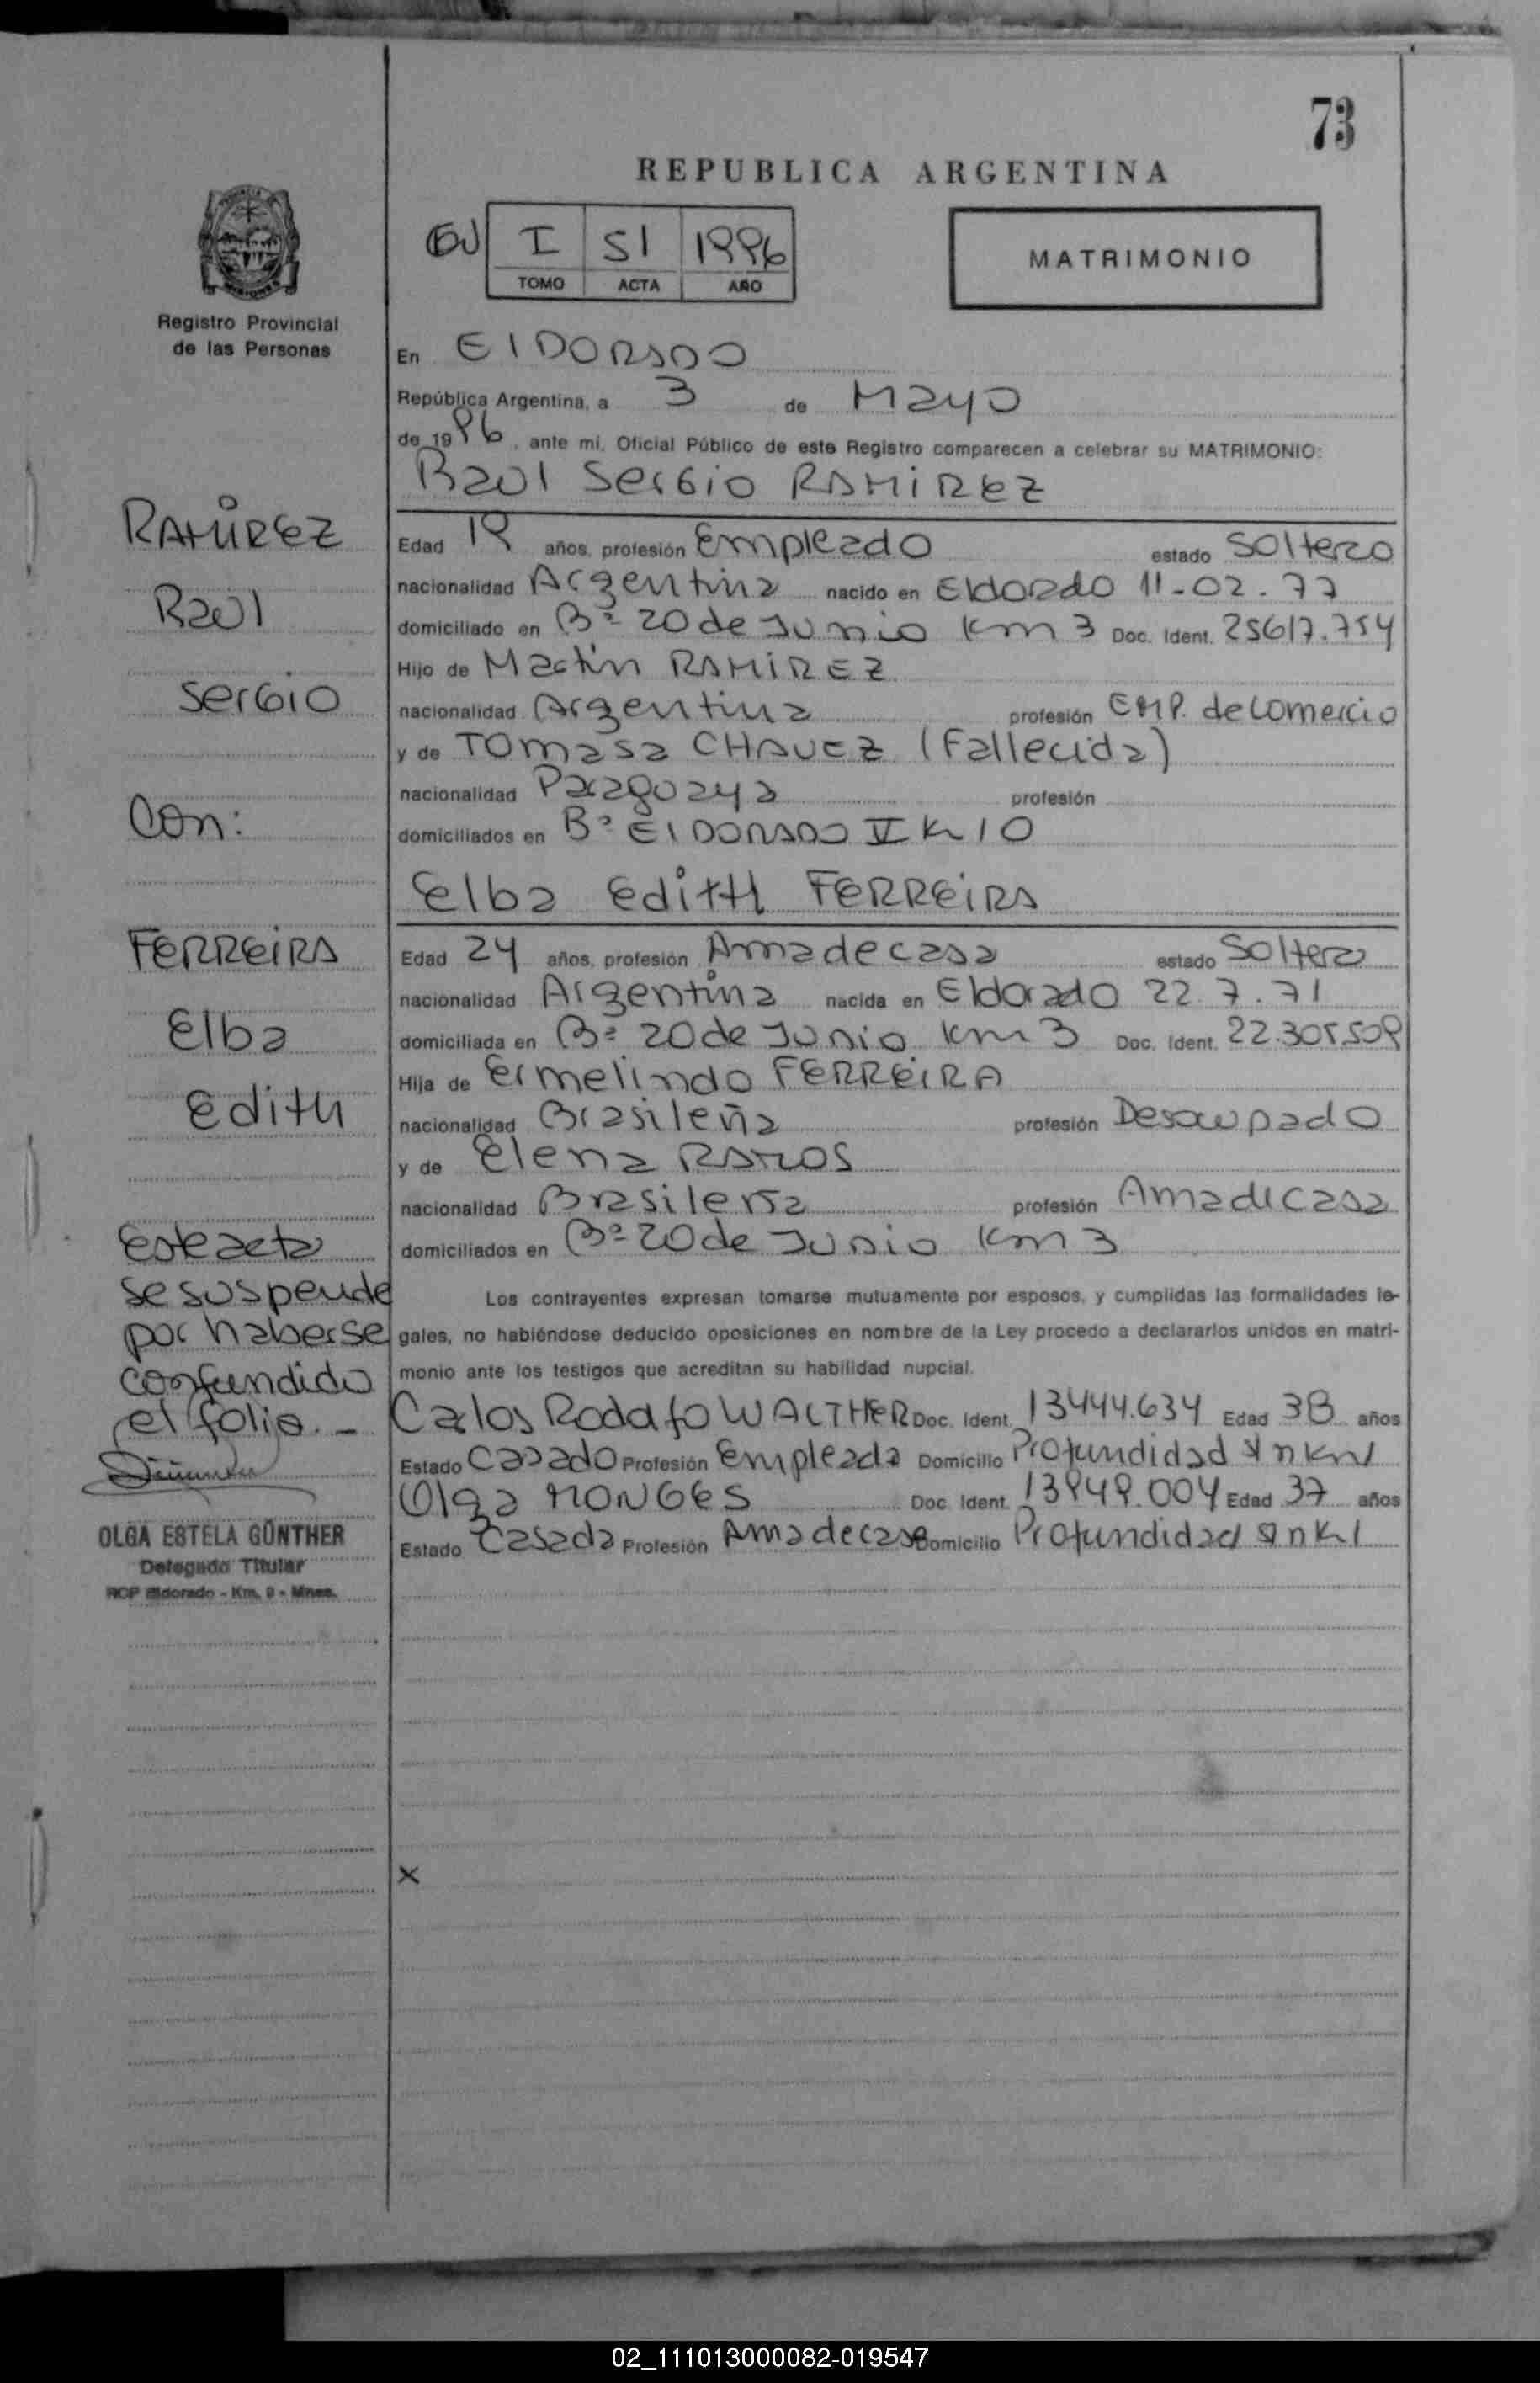 73
REPUBLICA ARGENTINA
I 51 1996
TOMO ACTA AÑO
MATRIMONIO
Registro Provincial
de las Personas
En ElDORADO
República Argentina, a 3 de Mayo
de 1996, ante mi, Oficial Público de este Registro comparecen a celebrar su MATRIMONIO:
Raúl Sergio RAMIREZ
Edad 19 años, profesión Empleado estado Soltero
nacionalidad Argentina nacido en Eldorado 11-02.77
domiciliado en Bº 20 de Junio Km 3 Doc. Ident. 25617.754
Hijo de Martín RAMIREZ
nacionalidad Argentina profesión EMP. de Comercio
y de Tomasa CHAVEZ (Fallecida)
nacionalidad Paraguaya profesión
domiciliados en Bº ElDORADO V K 10
Elba Edith FERREIRA
Edad 24 años, profesión Ama de casa estado Soltera
nacionalidad Argentina nacida en Eldorado 22.7.71
domiciliada en Bº 20 de Junio Km 3 Doc. Ident. 22.305.509
Hija de Ermelindo FERREIRA
nacionalidad Brasileña profesión Desocupado
y de Elena RAMOS
nacionalidad Brasileña profesión Ama de casa
domiciliados en Bº 20 de Junio Km 3
Los contrayentes expresan tomarse mutuamente por esposos, y cumplidas las formalidades le-
gales, no habiéndose deducido oposiciones en nombre de la Ley procedo a declararlos unidos en matri-
monio ante los testigos que acreditan su habilidad nupcial.
Carlos Rodolfo WALTHER Doc. Ident. 13444.634 Edad 38 años
Estado Casado Profesión Empleado Domicilio Profundidad s/n Km 1
Olga MONGES Doc. Ident. 13949.004 Edad 37 años
Estado Casada Profesión Ama de casa Domicilio Profundidad s/n K 1
x
RAMIREZ
Raúl
Sergio
Con:
FERREIRA
Elba
Edith
Este acta
se suspende
por haberse
confundido
el folio.-
OLGA ESTELA GÜNTHER
Delegado Titular
RCP Eldorado - Km. 9 - Mnes.
02_111013000082-019547